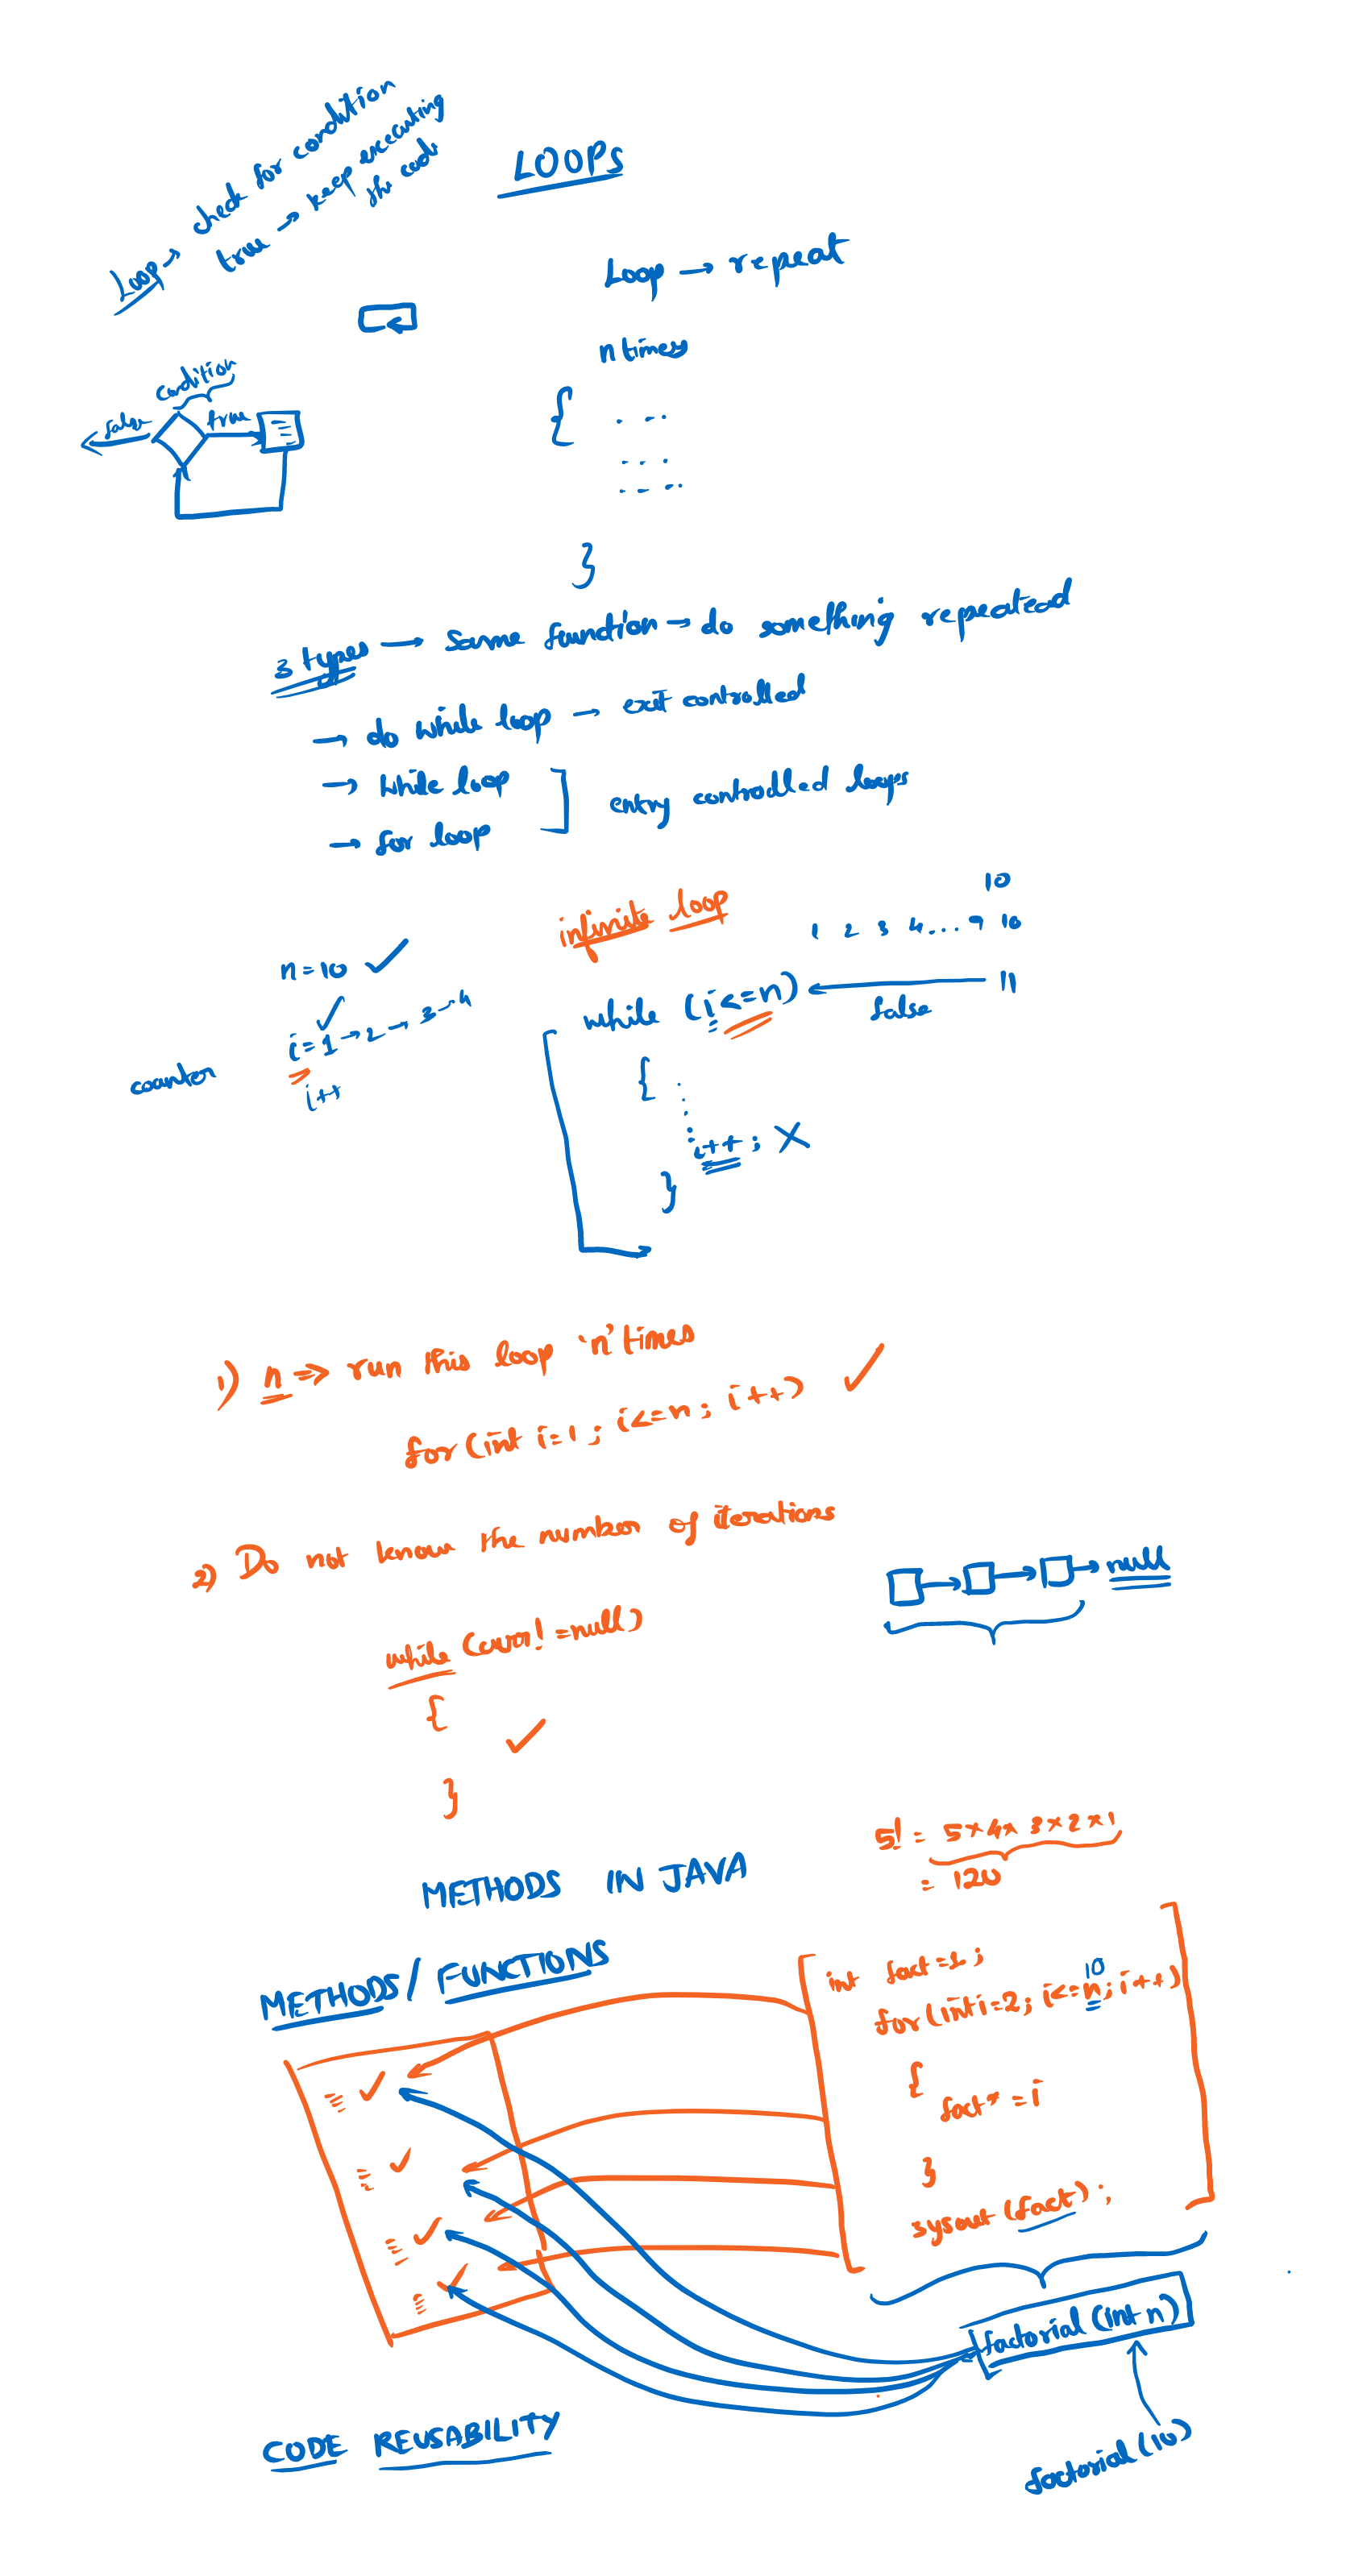 LOOPS
Loop → check for condition
true → keep executing
the code
Loop → repeat
n times
{ . . .
. . .
. . . .
}
condition
false
true
3 types → same function → do something repeatead
→ do while loop → exit controlled
→ while loop
→ for loop
entry controlled loops
infinite loop
10
1 2 3 4 ... 9 10
n = 10 ✓
while (i <= n)
false
11
✓
i = 1 → 2 → 3 → 4
counter
i++
{
i++;
}
1) n ⇒ run this loop 'n' times
for (int i=1; i<=n; i++) ✓
2) Do not know the number of iterations
null
while (curr! = null)
{
✓
}
5! = 5 × 4 × 3 × 2 × 1
= 120
METHODS IN JAVA
METHODS / FUNCTIONS
int fact = 1;
10
for (int i=2; i<=n; i++)
{
fact* = i
}
sysout (fact);
factorial (int n)
factorial (10)
CODE REUSABILITY